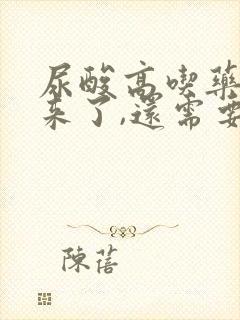 尿酸高喫藥
來了,還需要
陳蓓